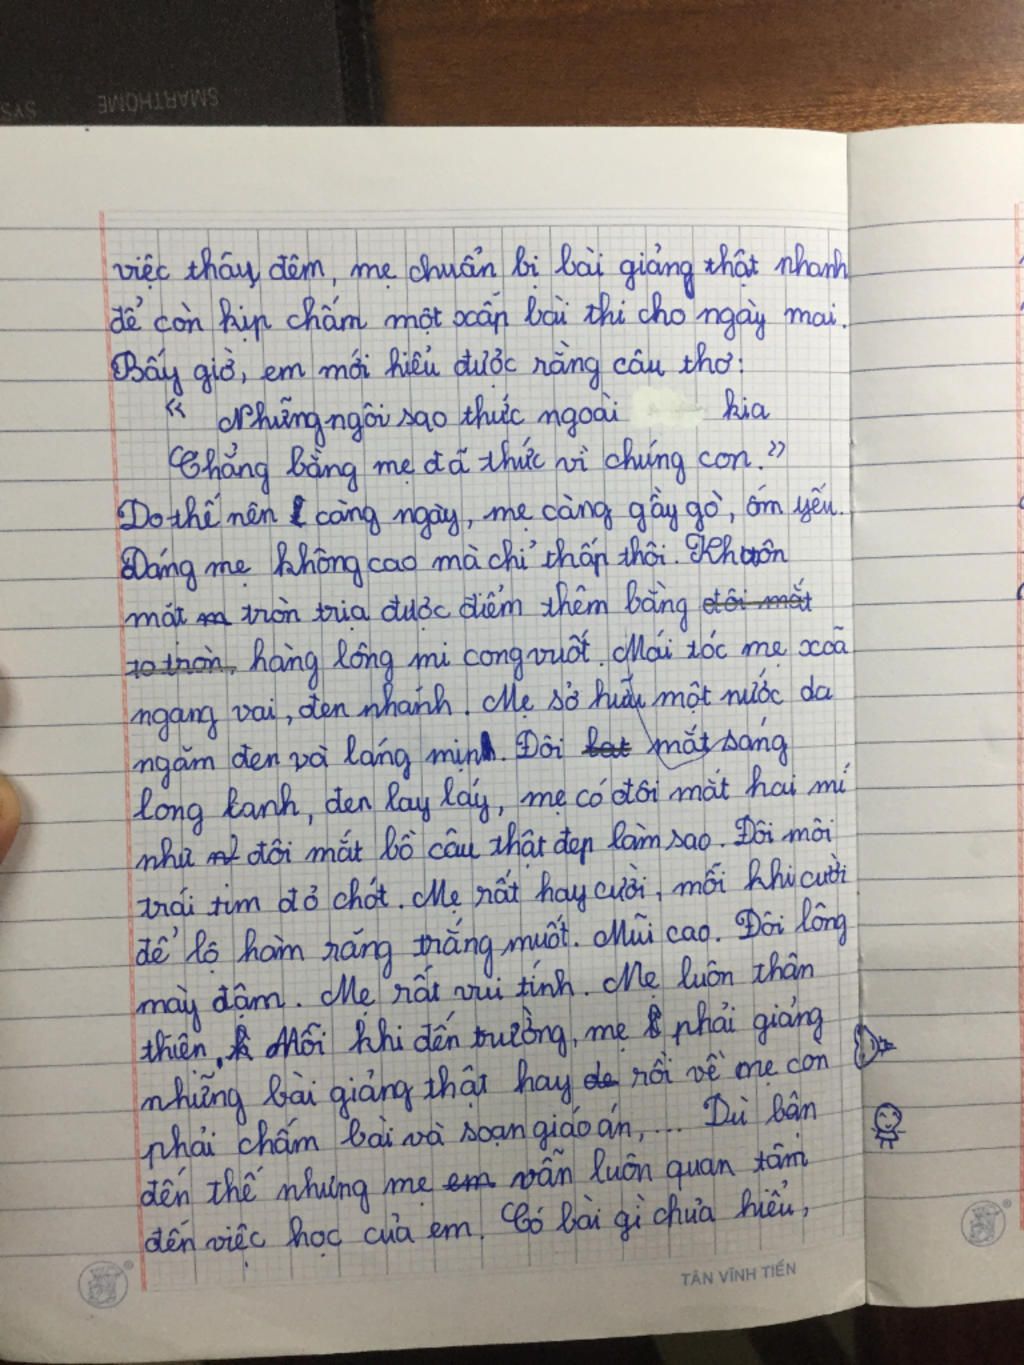 SMARTHOME
SYS
việc thâu đêm, mẹ chuẩn bị bài giảng thật nhanh
để còn kịp chấm một xấp bài thi cho ngày mai.
Bấy giờ, em mới hiểu được rằng câu thơ:
" Những ngôi sao thức ngoài kia
Chẳng bằng mẹ đã thức vì chúng con."
Do thế nên càng ngày, mẹ càng gầy gò, ốm yếu.
Dáng mẹ không cao mà chỉ thấp thôi. Khuôn
mát tròn trịa được điểm thêm bằng đôi mắt
to tròn, hàng lông mi cong vuốt. Mái tóc mẹ xoã
ngang vai, đen nhánh. Mẹ sở hữu một nước da
ngăm đen và láng mịn. Đôi mắt sáng
long lanh, đen lay láy, mẹ có đôi mắt hai mí
như đôi mắt bồ câu thật đẹp làm sao. Đôi môi
trái tim đỏ chót. Mẹ rất hay cười, mỗi khi cười
để lộ hàm răng trắng muốt. Mũi cao. Đôi lông
mày đậm. Mẹ rất vui tính. Mẹ luôn thân
thiện. Mỗi khi đến trường, mẹ phải giảng
những bài giảng thật hay rồi về mẹ còn
phải chấm bài và soạn giáo án,... Dù bận
đến thế nhưng mẹ em vẫn luôn quan tâm
đến việc học của em. Có bài gì chưa hiểu,
TÂN VĨNH TIẾN